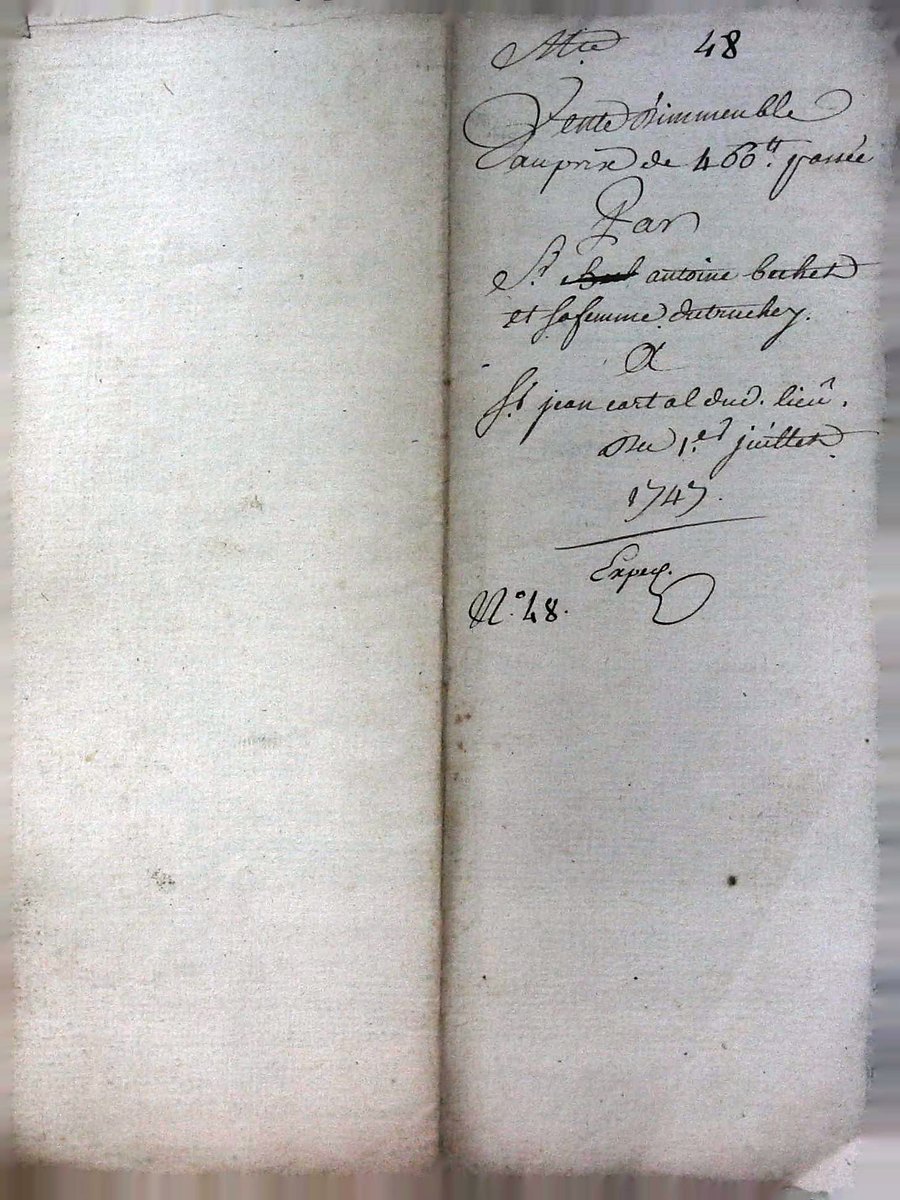 48
Vente d'immeuble
au prix de 460tt passée
Par
Sr antoine bechet
et sa femme. dutruchey.
A
Sr jean cartal dud. lieu.
Du 1.er juillet
1747.
Exped.
N.o 48.